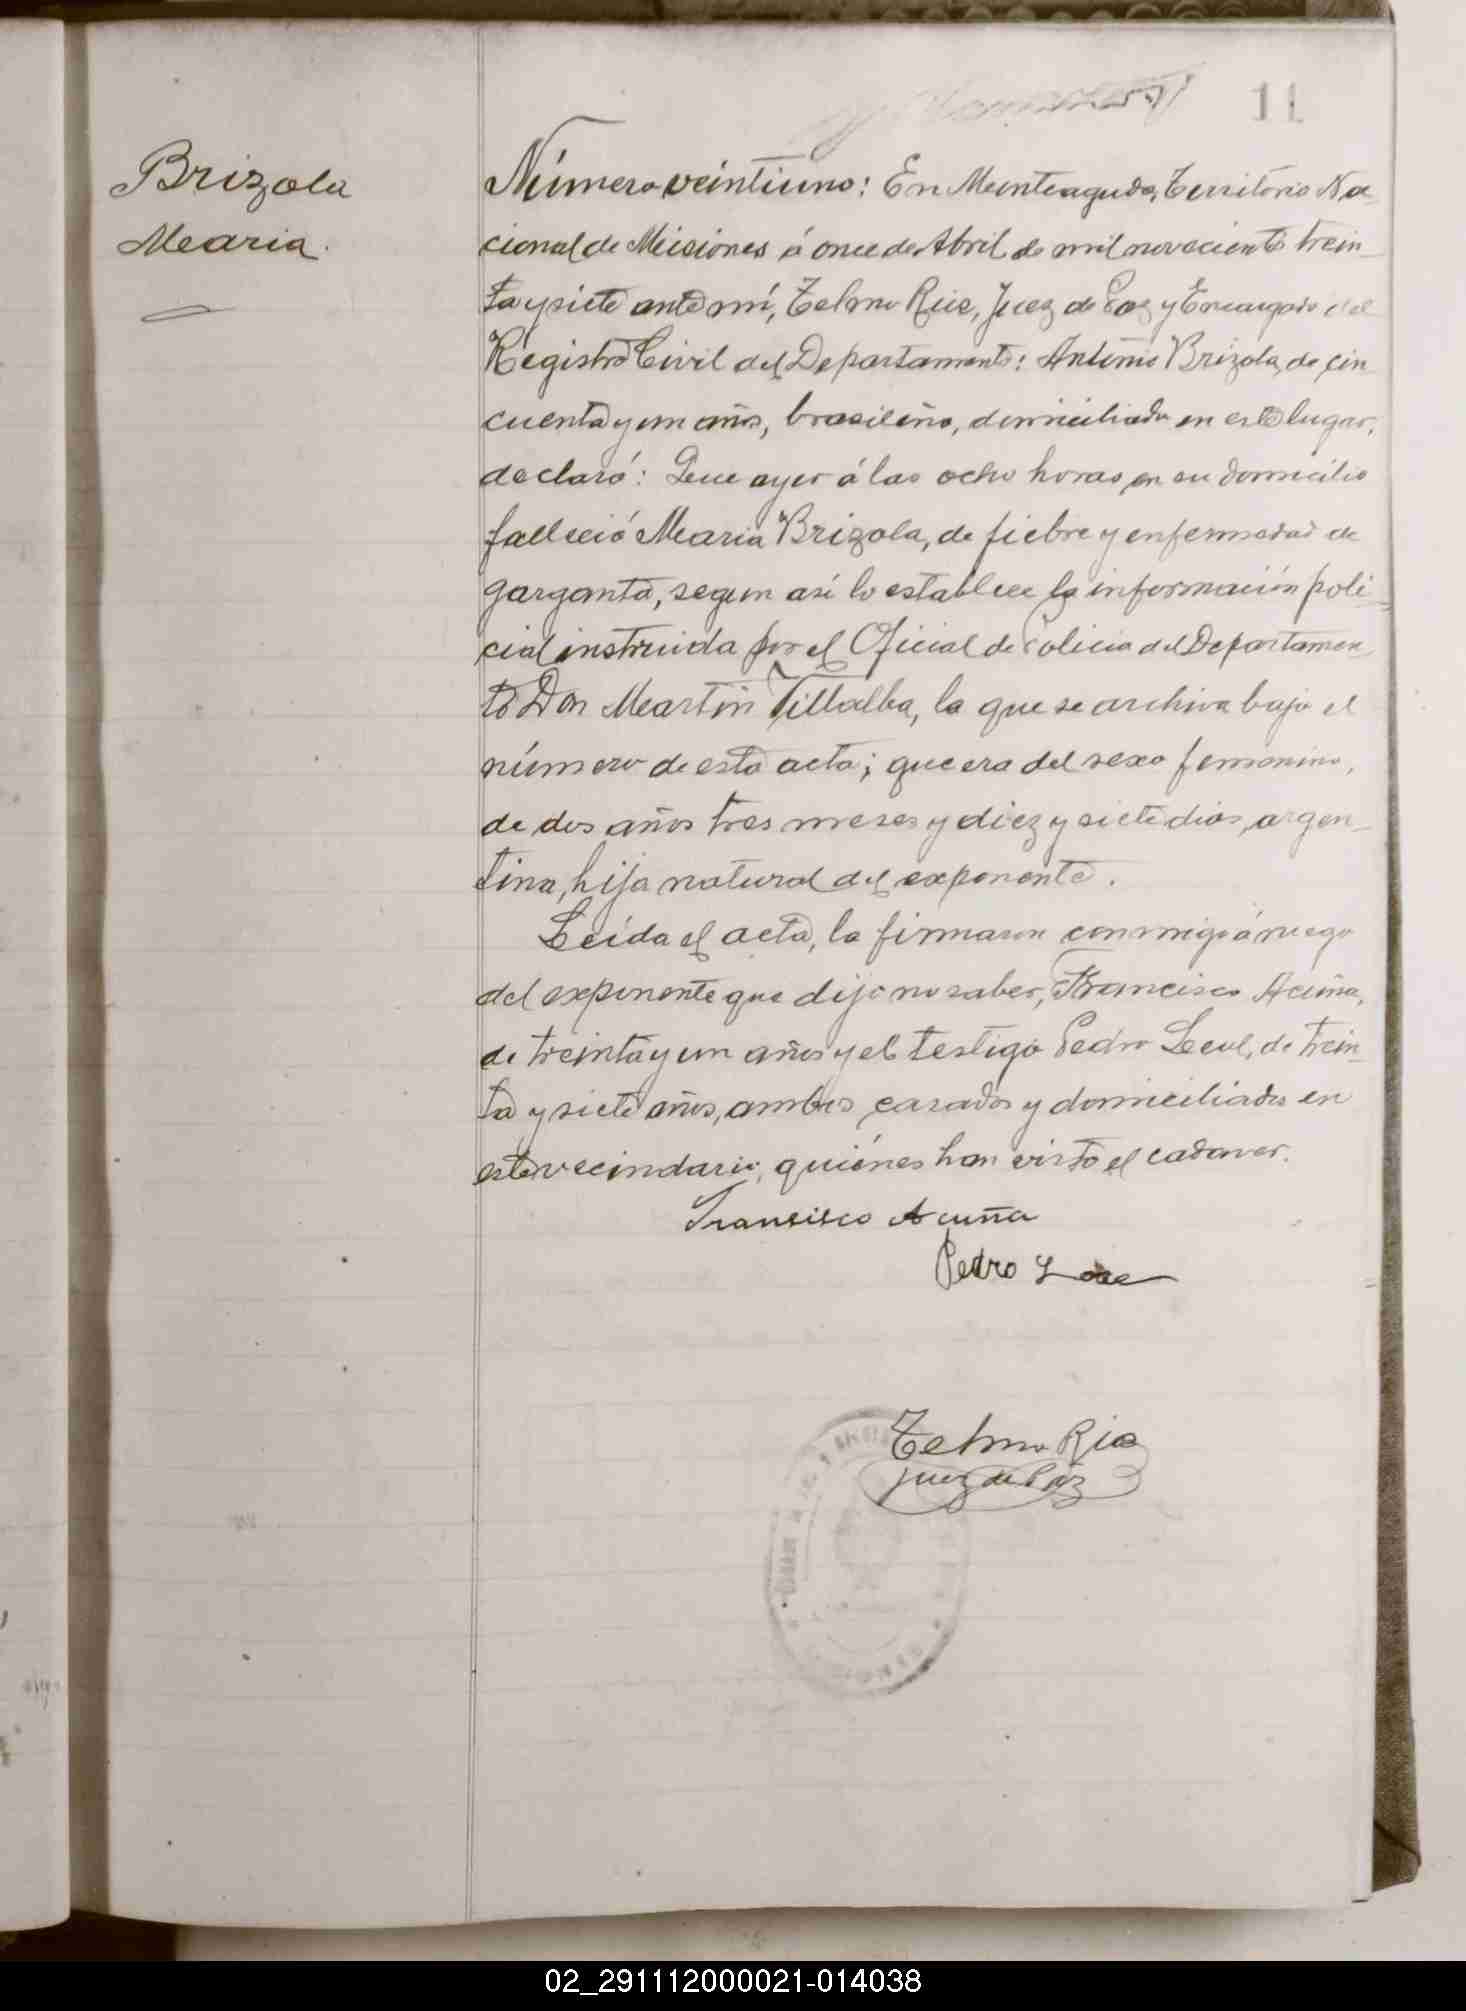 11
Brizola
Maria.
Número veintiuno: En Monteagudo, Territorio Na-
cional de Misiones á once de Abril de mil novecientos trein-
ta y siete ante mí, Telmo Ric, Juez de Paz y Encargado del
Registro Civil del Departamento: Antonio Brizola, de cin-
cuenta y un años, brasileño, domiciliado en este lugar,
declaró: Que ayer á las ocho horas en su domicilio
falleció Maria Brizola, de fiebre y enfermedad de
garganta, segun así lo establece la información poli-
cial instruida por el Oficial de Policia del Departamen-
to Don Martin Villalba, la que se archiva bajo el
número de esta acta; que era del sexo femenino,
de dos años tres meses y diez y siete dias, argen-
tina, hija natural del exponente.
Leída el acta, la firmaron conmigo á ruego
del exponente que dijo no saber, Francisco Acuña,
de treinta y un años y el testigo Pedro de trein-
ta y siete años, ambos casados y domiciliados en
este vecindario, quiénes han visto el cadaver.
Francisco Acuña
Pedro
Telmo Ric
Juez de Paz
02_291112000021-014038